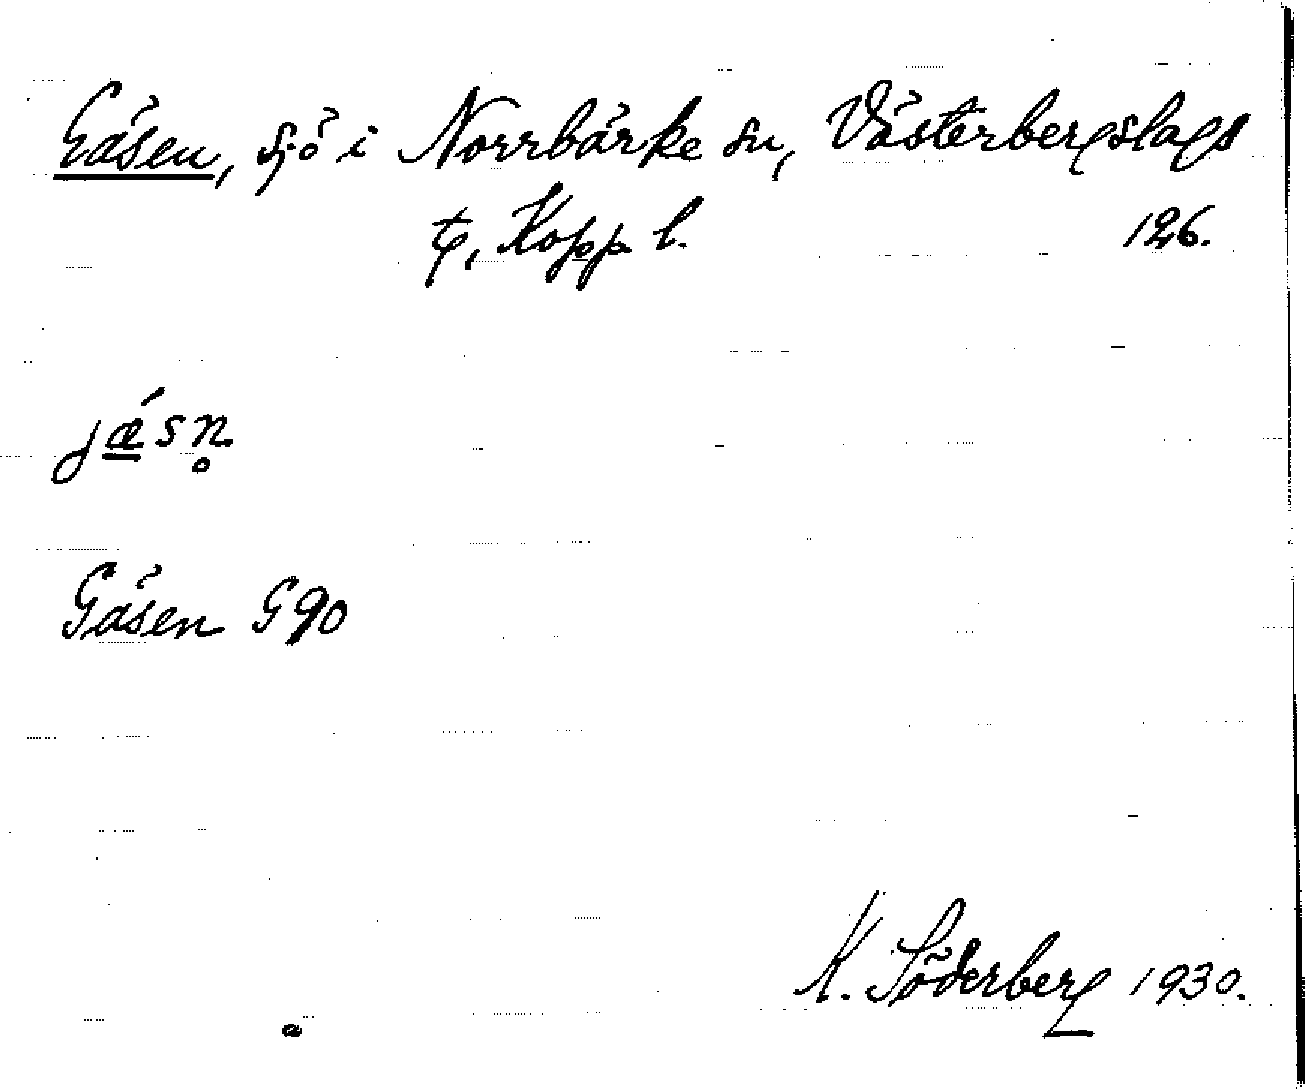 Gäsen, sjö i Norrbärke sn, Västerbergslags
tg, Kopp. l. 126.
jæ´sn̥
Gäsen G 90
K. Söderberg 1930.